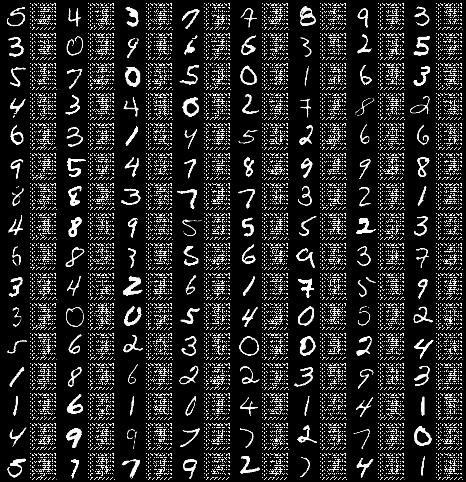 5 4 3 7 7 8 9 3
3 0 9 6 6 3 2 5
5 7 0 5 0 1 6 3
4 3 4 0 2 7 8 2
6 3 1 4 5 2 6 6
9 5 4 7 8 9 9 8
8 8 3 7 7 3 2 1
4 8 9 5 5 5 2 3
6 8 3 5 6 9 3 7
3 4 2 6 1 7 5 9
3 0 0 5 4 0 5 2
5 6 2 3 0 0 2 4
1 8 6 2 2 3 9 3
1 6 1 0 4 1 4 1
4 9 9 7 7 2 7 0
5 7 7 9 2 7 4 1